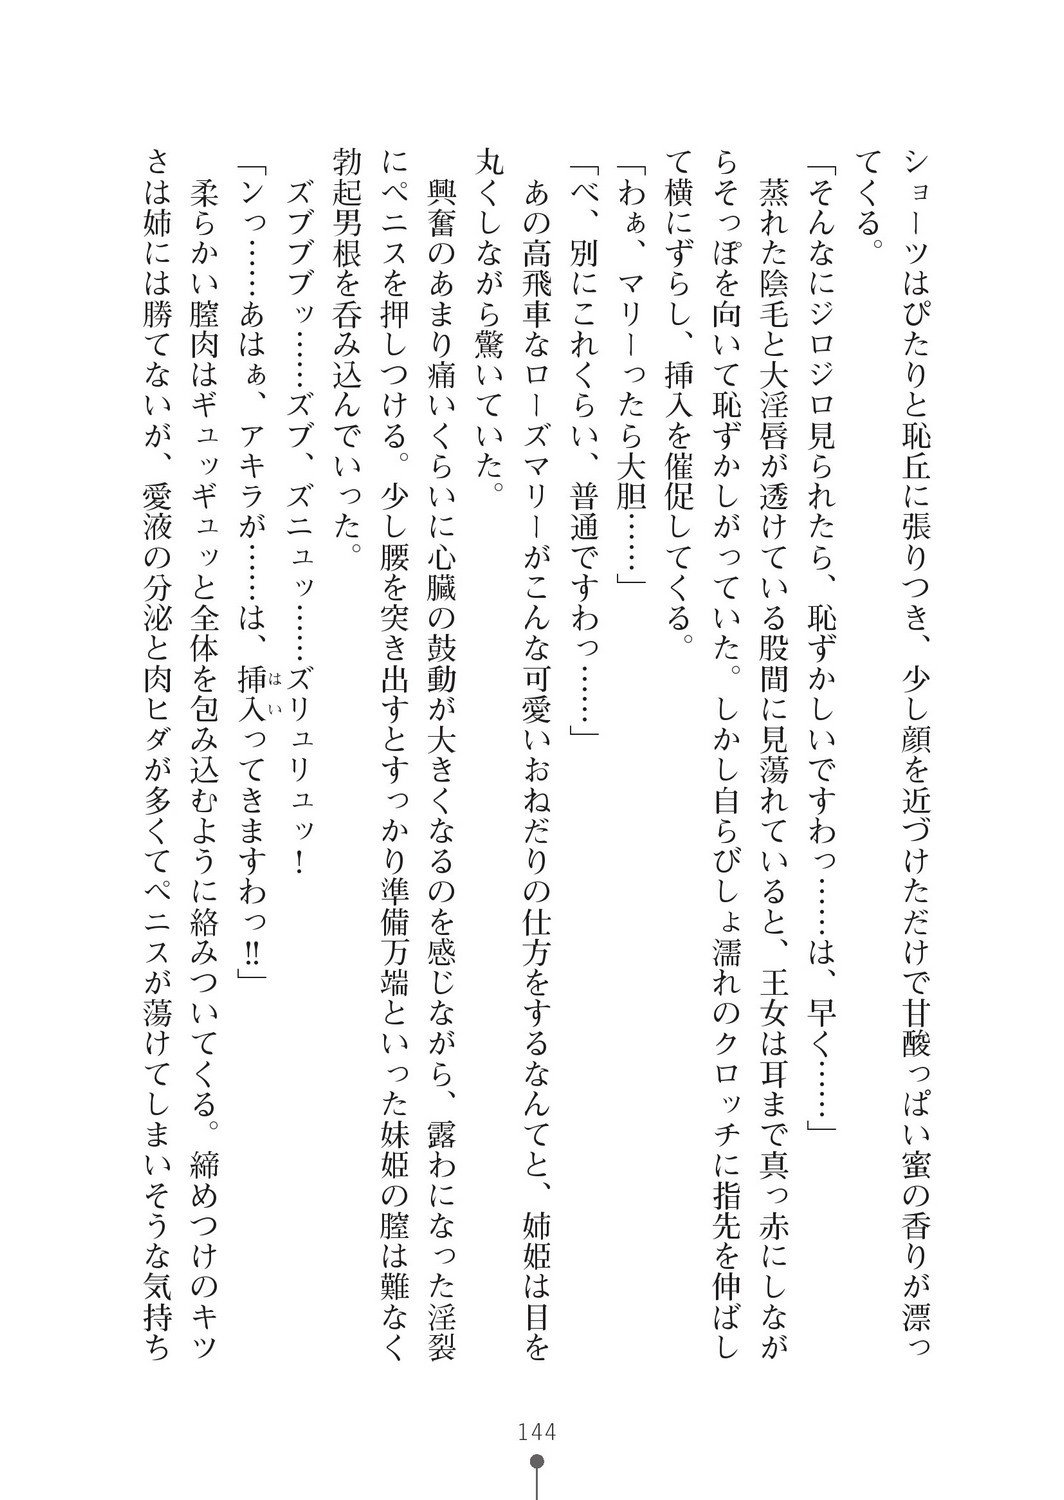 ショーツはぴたりと恥丘に張りつき、少し顔を近づけただけで甘酸っぱい蜜の香りが漂っ
てくる。
「そんなにジロジロ見られたら、恥ずかしいですわっ……は、早く……」
蒸れた陰毛と大淫唇が透けている股間に見蕩れていると、王女は耳まで真っ赤にしなが
らそっぽを向いて恥ずかしがっていた。しかし自らびしょ濡れのクロッチに指先を伸ばし
て横にずらし、挿入を催促してくる。
「わぁ、マリーったら大胆……」
「べ、別にこれくらい、普通ですわっ……」
あの高飛車なローズマリーがこんな可愛いおねだりの仕方をするなんてと、姉姫は目を
丸くしながら驚いていた。
興奮のあまり痛いくらいに心臓の鼓動が大きくなるのを感じながら、露わになった淫裂
にペニスを押しつける。少し腰を突き出すとすっかり準備万端といった妹姫の膣は難なく
勃起男根を呑み込んでいった。
ズブブブッ……ズブ、ズニュッ……ズリュリュッ！
「ンっ……あはぁ、アキラが……は、挿入ってきますわっ‼」
はい
柔らかい膣肉はギュッギュッと全体を包み込むように絡みついてくる。締めつけのキツ
さは姉には勝てないが、愛液の分泌と肉ヒダが多くてペニスが蕩けてしまいそうな気持ち
144